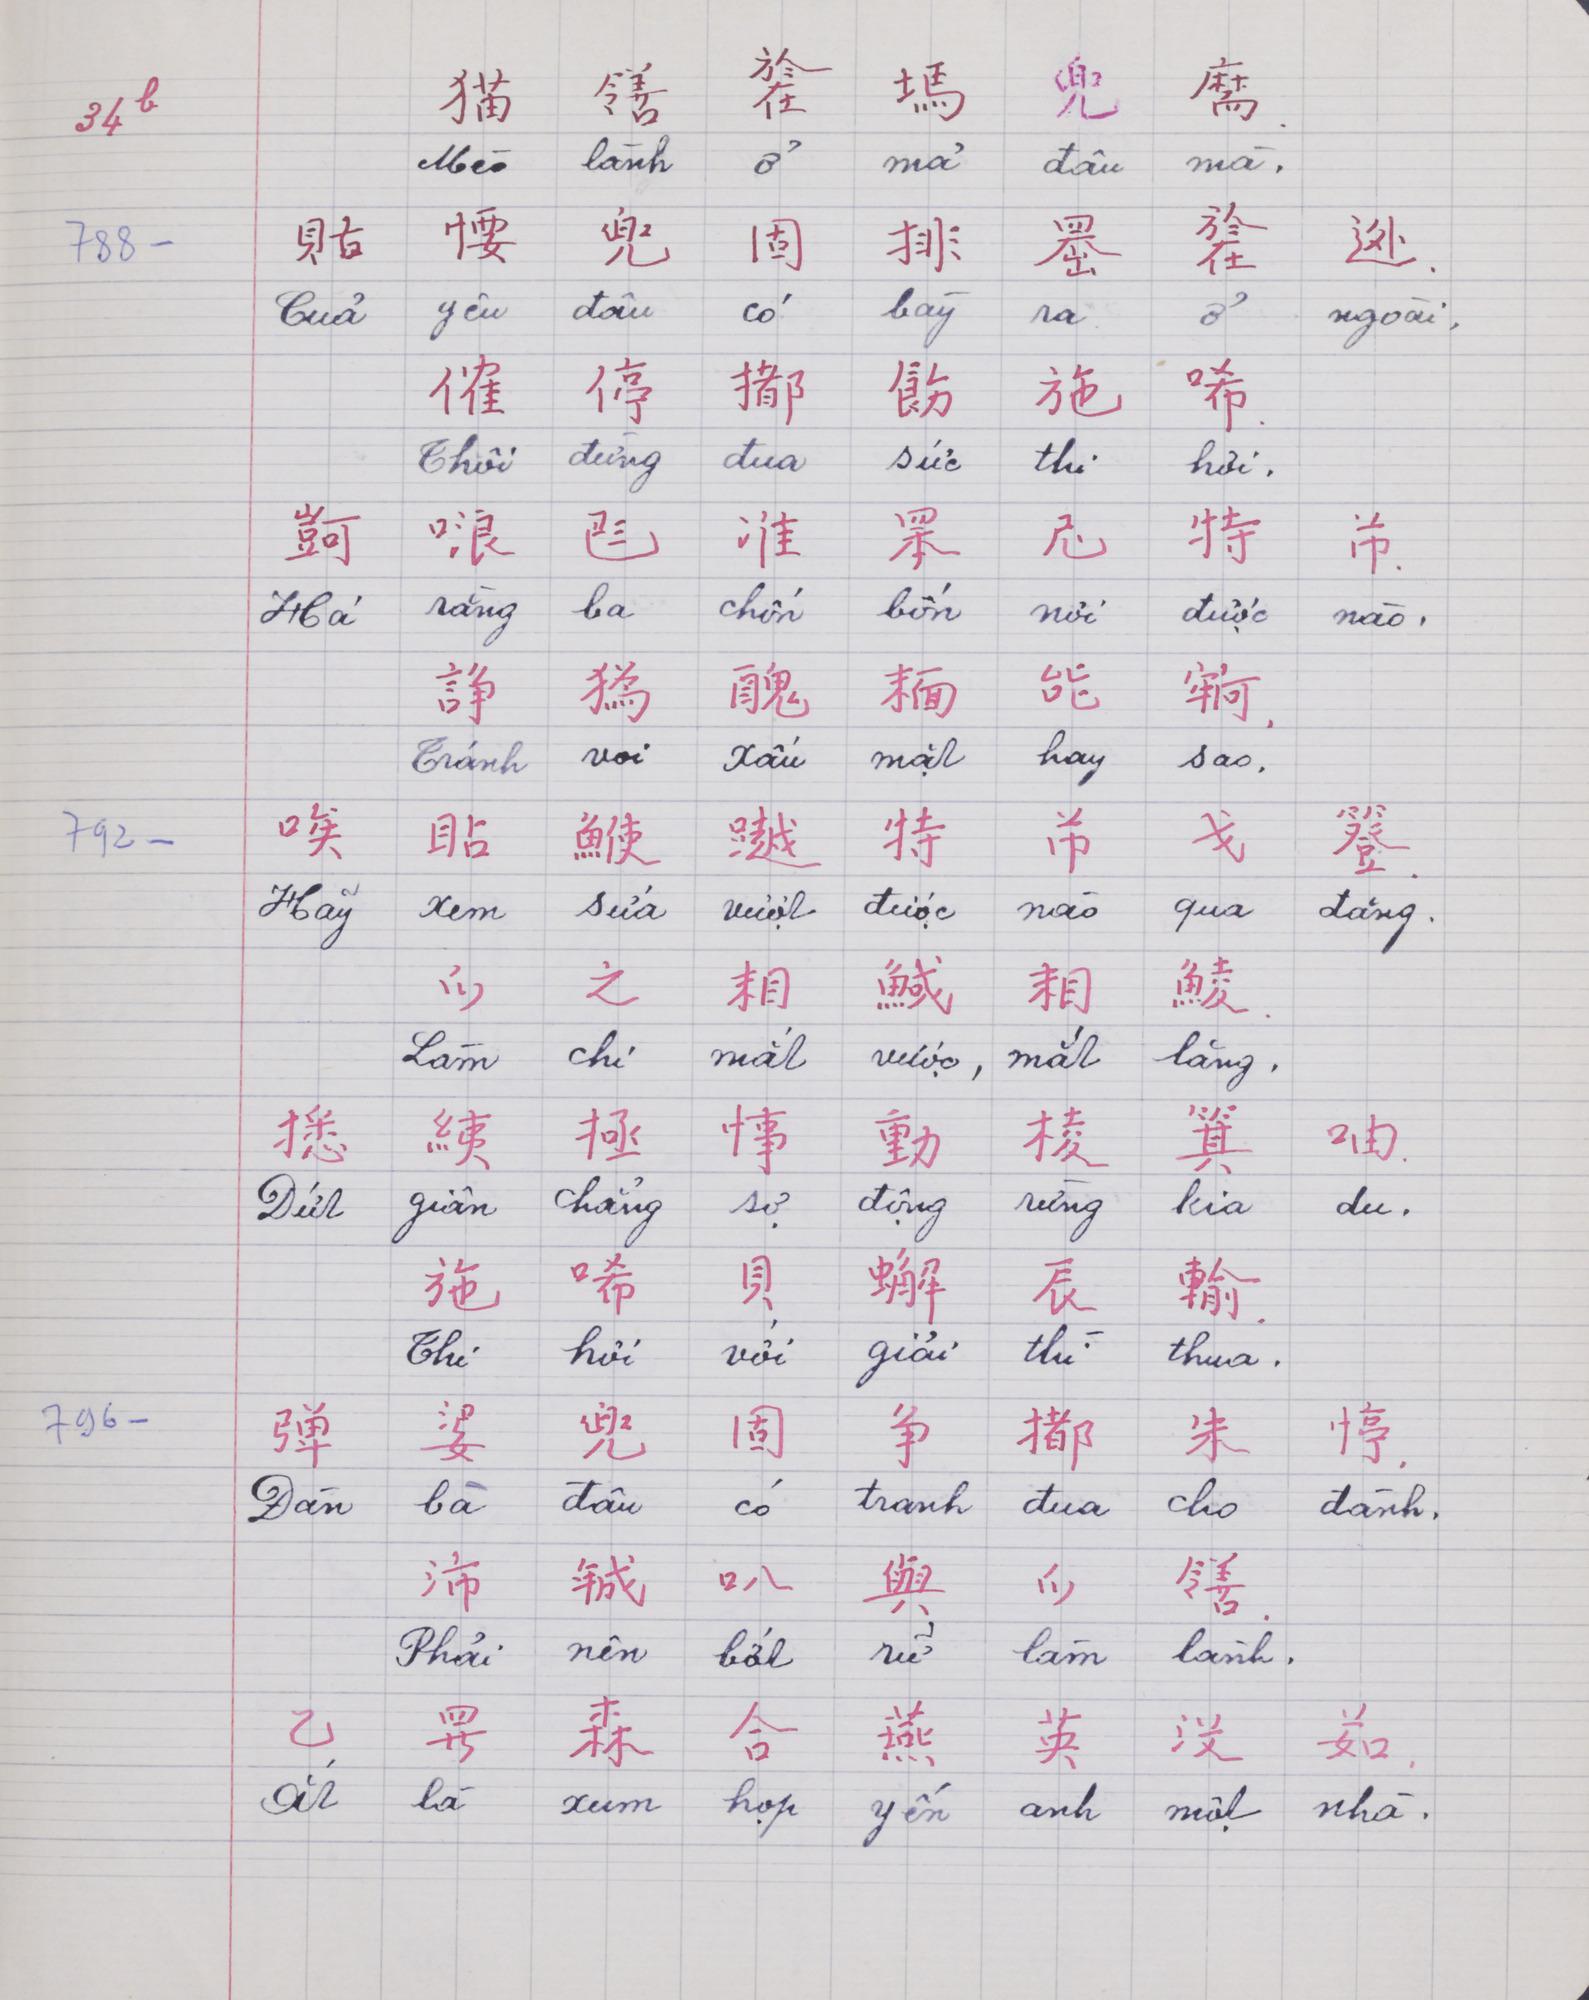 34b
猫 𫅜 𣄒 塢 兜 麻.
Mèo lành ở mả đâu mà.
788 – 貼 𢞂 兜 固 排 𦋦 𣄒 外.
Của yêu đâu có bày ra ở ngoài.
催 停 都 飭 施 唏.
Thôi đừng đua sức thi hỏi.
哿 哴 𠀧 准 𦊚 尼 特 芇.
Há rằng ba chốn bốn nơi được nào.
諍 𤠅 醜 𩈘 能 牢.
Tránh voi xấu mặt hay sao.
792 – 唉 䀡 𩼁 越 特 芇 戈 簦.
Hãy xem sứa vượt được nào qua đăng.
𪜀 之 相 鰄 相 鯪.
Làm chi mắt vược, mắt lăng.
𢴑 練 極 𢜝 動 棱 箕 呦.
Dứt giân chẳng sợ động rừng kia du.
施 唏 貝 蠏 辰 輸.
Thi hỏi với giải thì thua.
796 – 弹 婆 兜 固 争 都 朱 停.
Đàn bà đâu có tranh đua cho đành.
沛 𢧚 叭 與 𪜀 𫅜.
Phải nên bắt rủ làm lành.
乙 羅 森 合 燕 英 没 茹.
Ất là xum họp yến anh một nhà.